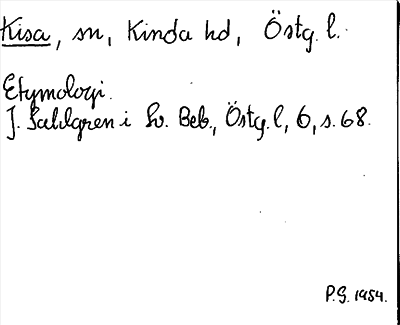 Kisa, sn, Kinda hd, Östg. l.
Etymologi.
J. Sahlgren i Sv. Beb., Östg. l, 6, s. 68.
P.G. 1954.